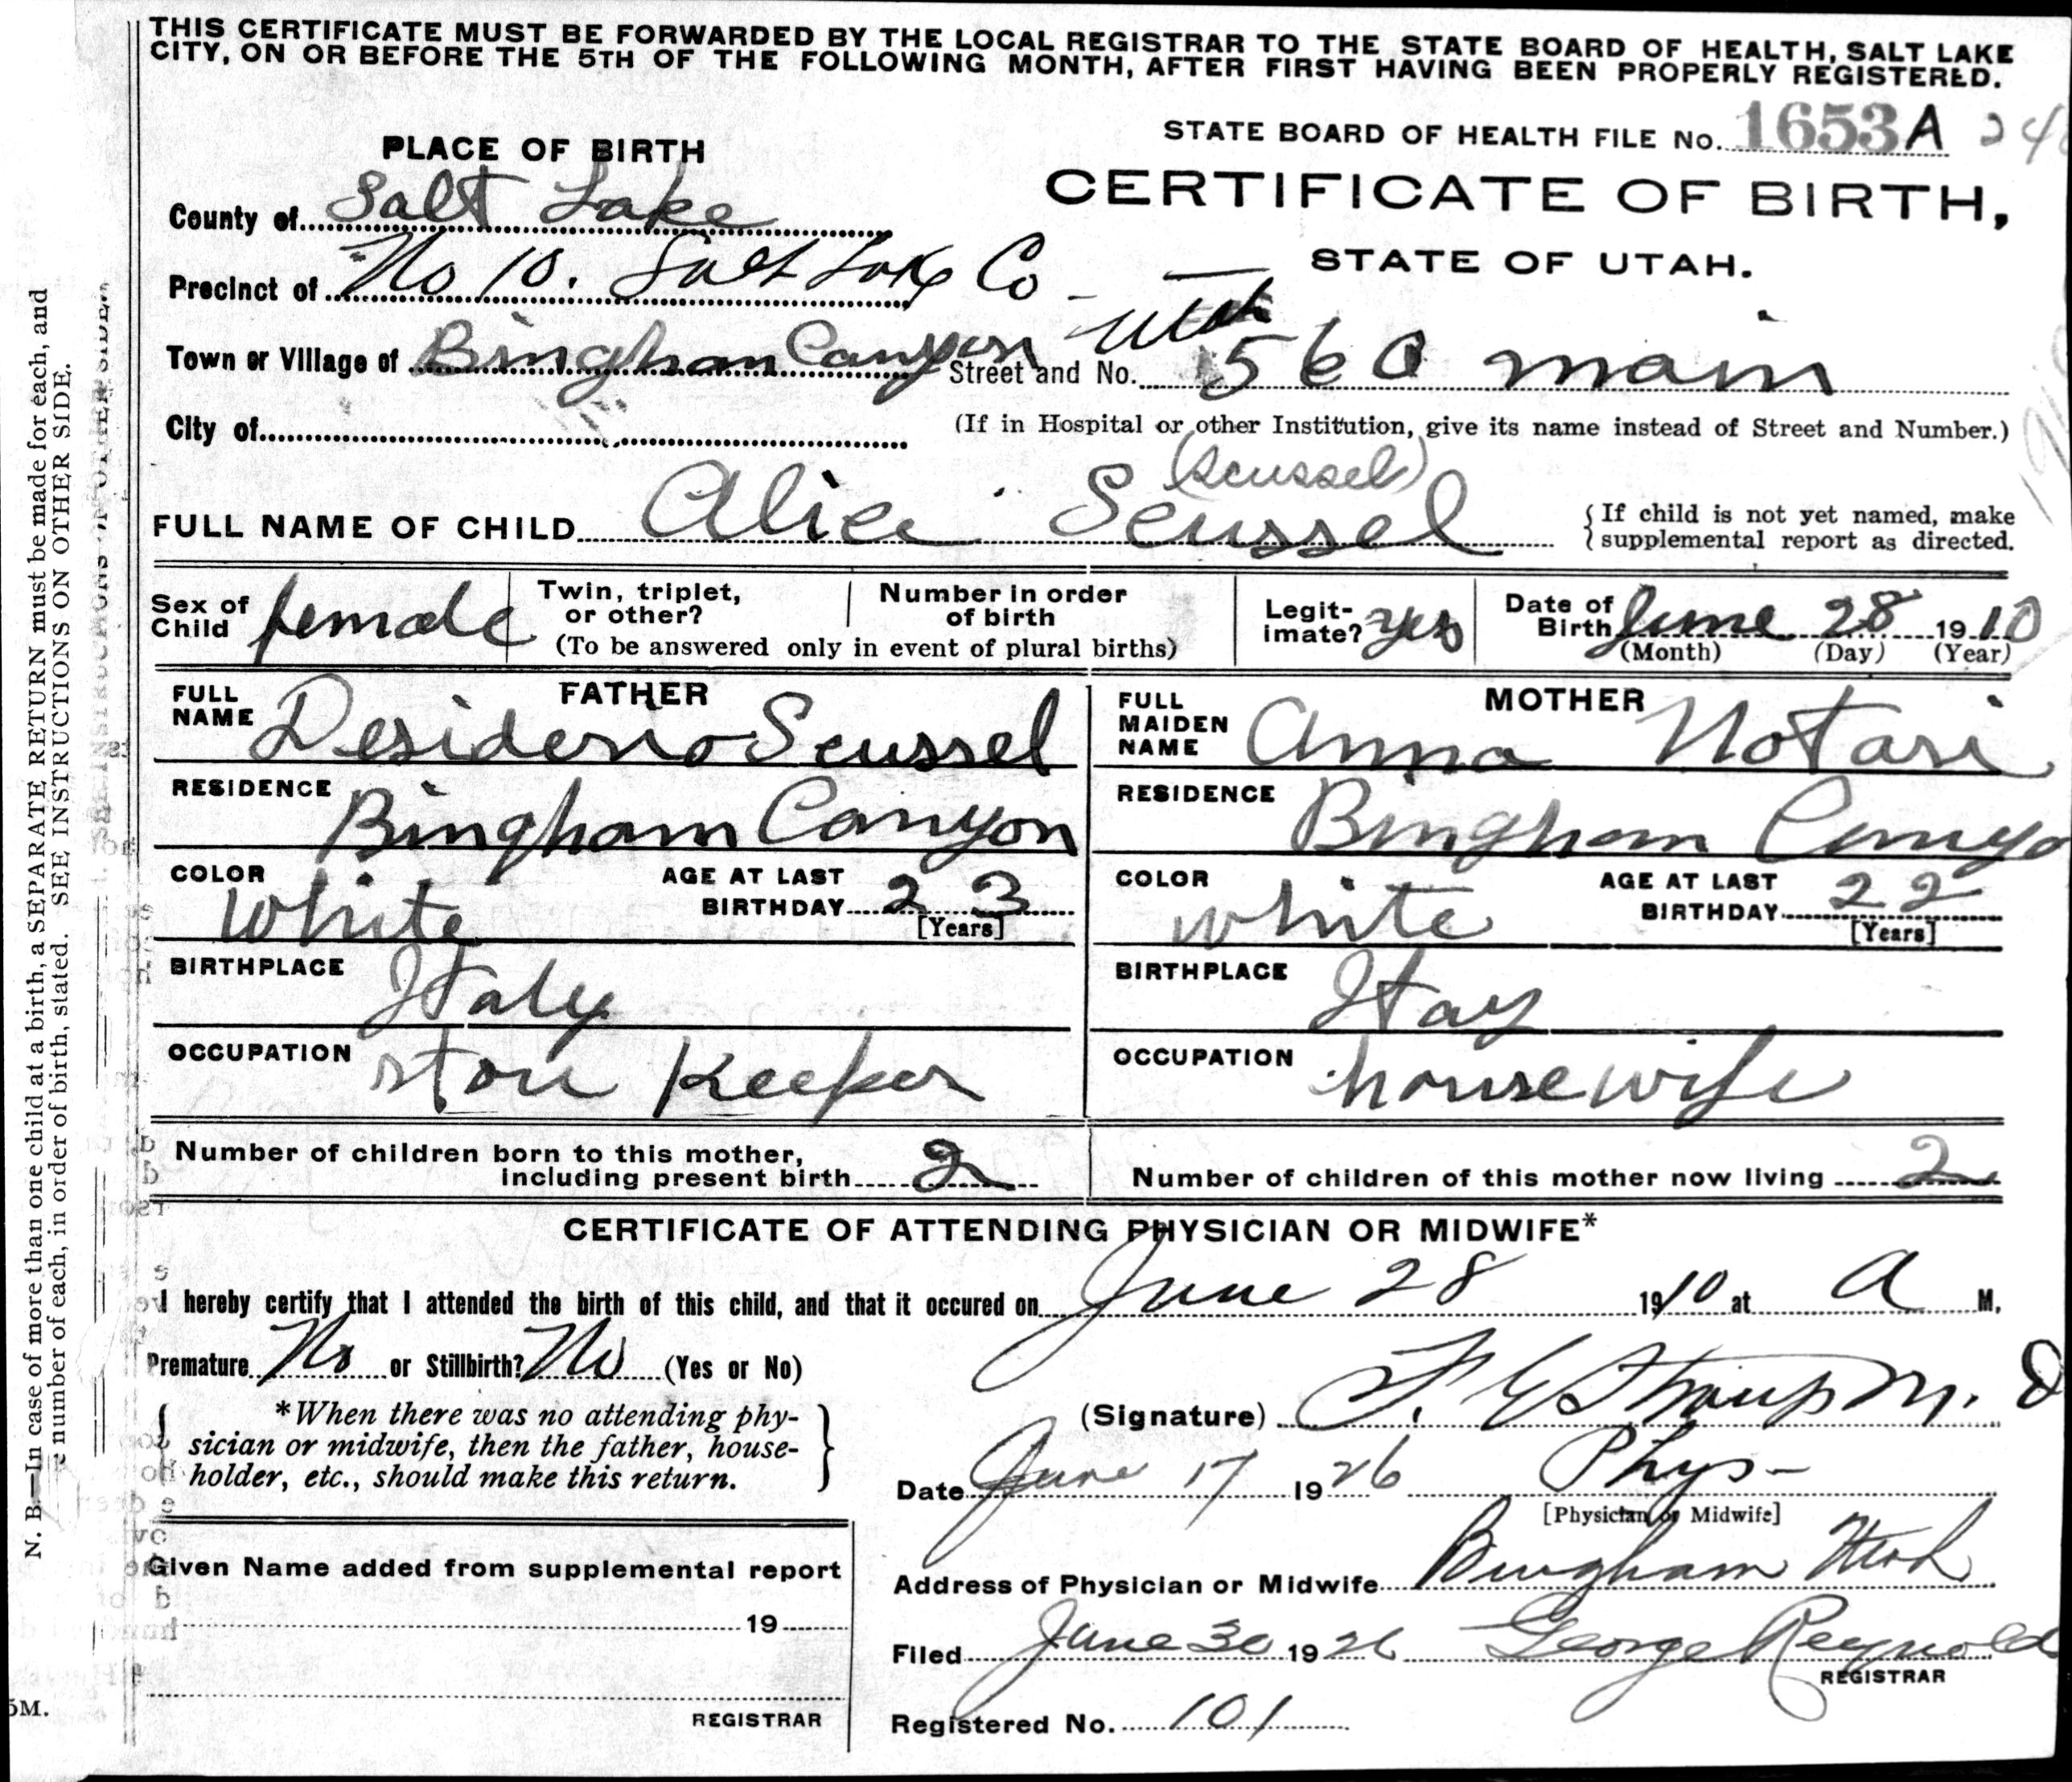 THIS CERTIFICATE MUST BE FORWARDED BY THE LOCAL REGISTRAR TO THE STATE BOARD OF HEALTH, SALT LAKE
CITY, ON OR BEFORE THE 5TH OF THE FOLLOWING MONTH, AFTER FIRST HAVING BEEN PROPERLY REGISTERED.
STATE BOARD OF HEALTH FILE No. 1653 A 24
PLACE OF BIRTH
CERTIFICATE OF BIRTH,
STATE OF UTAH.
County of Salt Lake
Precinct of No 10. Salt Lake Co - Utah
Town or Village of Bingham Canyon Street and No. 560 main
City of (If in Hospital or other Institution, give its name instead of Street and Number.)
(Scussel)
FULL NAME OF CHILD Alice Scussel
{ If child is not yet named, make
{ supplemental report as directed.
Sex of Child female
Twin, triplet, or other?
Number in order of birth
(To be answered only in event of plural births)
Legitimate? yes
Date of Birth June 28 1910
(Month) (Day) (Year)
FATHER
FULL NAME Desiderio Scussel
RESIDENCE Bingham Canyon
COLOR White AGE AT LAST BIRTHDAY 23 [Years]
BIRTHPLACE Italy
OCCUPATION Store Keeper
MOTHER
FULL MAIDEN NAME Anna Notari
RESIDENCE Bingham Canyo
COLOR white AGE AT LAST BIRTHDAY 22 [Years]
BIRTHPLACE Itay
OCCUPATION housewife
Number of children born to this mother,
including present birth 2
Number of children of this mother now living 2
CERTIFICATE OF ATTENDING PHYSICIAN OR MIDWIFE*
I hereby certify that I attended the birth of this child, and that it occured on June 28 1910 at A M.
Premature No or Stillbirth? No (Yes or No)
*When there was no attending phy-
sician or midwife, then the father, house-
holder, etc., should make this return.
(Signature) F. E. Straup M. D
Date June 17 1926 Phys-
[Physician or Midwife]
Address of Physician or Midwife Bingham Utah
Filed June 30 1926 George Reynold
REGISTRAR
Registered No. 101
Given Name added from supplemental report
19
REGISTRAR
N. B.—In case of more than one child at a birth, a SEPARATE RETURN must be made for each, and
number of each, in order of birth, stated. SEE INSTRUCTIONS ON OTHER SIDE.
5M.